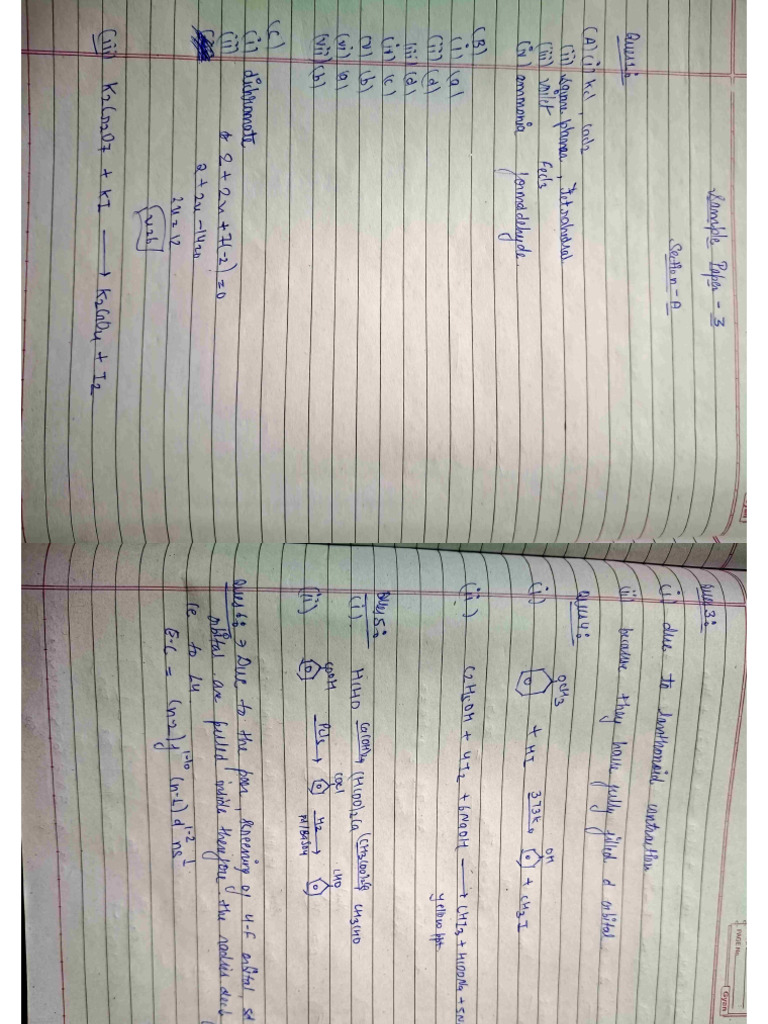 Sample Paper - 3
Section - A
Ques1:
(A) (i) KCl, CaCl2
(ii) square planar, Tetrahedral
(iii) voilet FeCl3
(iv) ammonia formadehyde.
(B)
(i) (a)
(ii) (d)
(iii) (d)
(iv) (c)
(v) (b)
(vi) (a)
(vii) (b)
(C)
(i) dichromate
(ii) 2 + 2x + 7(-2) = 0
2 + 2x - 14 = 0
2x = 12
x=6
(iii) K2Cr2O7 + KI ⟶ K2CrO4 + I2
PAGE No.
Ques 3:
(i) due to lanthanoid contraction
(ii) because they have fully filled d orbital
Ques 4:
(i) OCH3 + HI 373K → OH + CH3I
(ii) C2H5OH + 4I2 + 6NaOH ⟶ CHI3 + HCOONa + 5N
yellow ppt
Ques 5:
(i) HCHO Ca(OH)2 → (HCOO)2Ca (CH3COO)2Ca CH3CHO
(ii) COOH PCl5 → COCl H2 → CHO
Pd/BaSO4
Ques 6: → Due to the poor, screening of 4-f orbital, sd
orbital are pulled inside therefore the radius decb
Ce to Lu
E.C = (n-2)f1-10 (n-1) d1-2 ns1